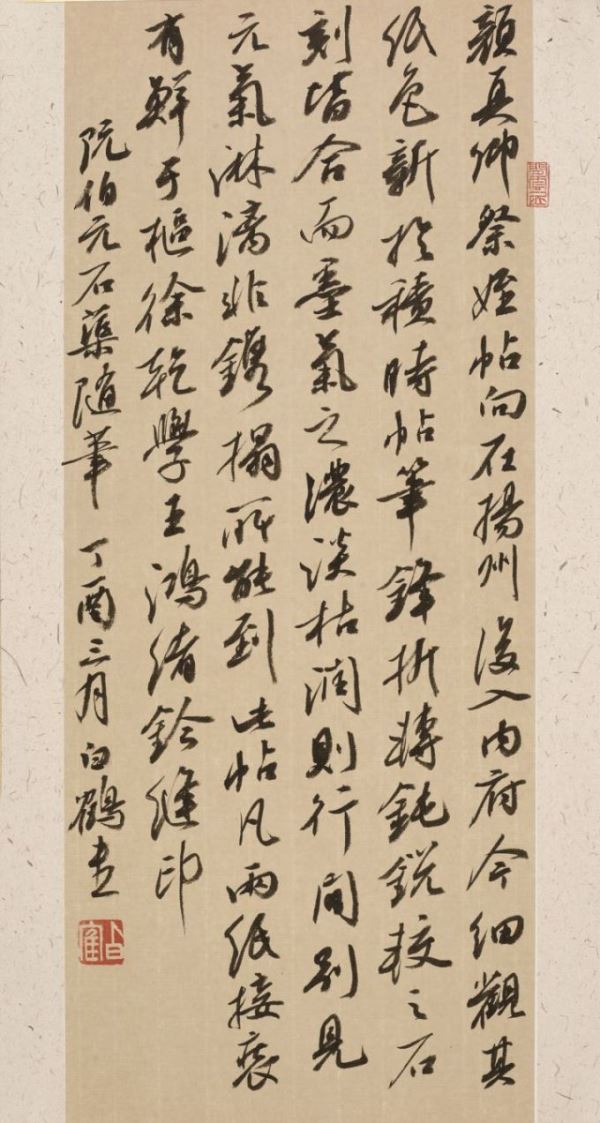 顏真卿祭姪帖向在揚州後入內府今細觀其
紙色新於積時帖筆鋒折轉鈍銳校之石
刻皆合而墨氣之濃淡枯潤則行間別見
元氣淋漓非鐫搨所能到此帖凡兩紙接處
有鮮于樞徐乾學王鴻緒鈐縫印
阮伯元石渠隨筆 丁酉三月白鶴書